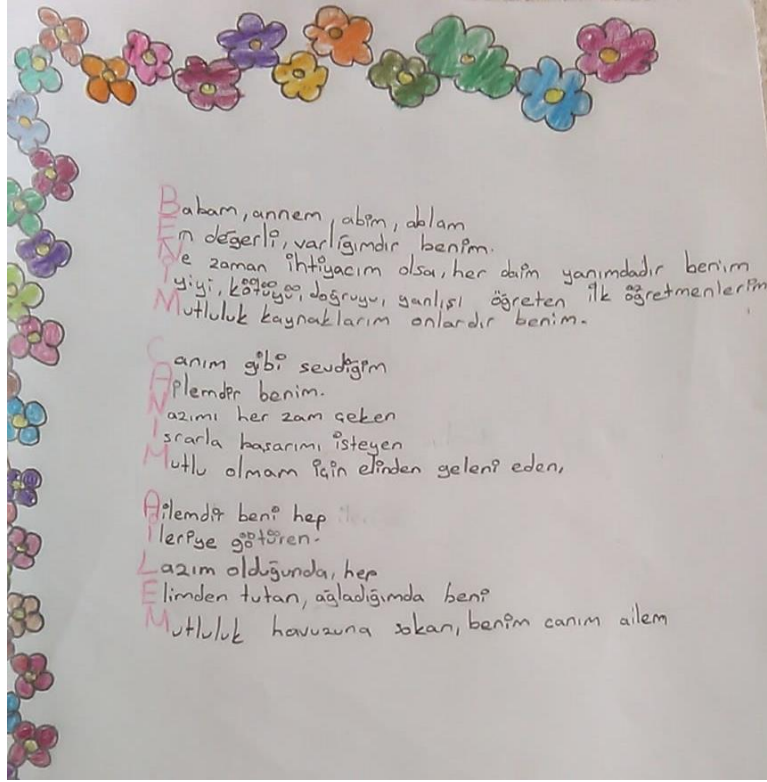 Babam, annem, abim, ablam
En değerli, varlığımdır benim.
Ne zaman ihtiyacım olsa, her daim yanımdadır benim
İyiyi, kötüyü, doğruyu, yanlışı öğreten ilk öğretmenlerim
Mutluluk kaynaklarım onlardır benim.
Canım gibi sevdiğim
Ailemdir benim.
Nazımı her zam çeken
Israrla başarımı isteyen
Mutlu olmam için elinden geleni eden,
Ailemdir beni hep
İleriye götüren.
Lazım olduğunda, hep
Elimden tutan, ağladığımda beni
Mutluluk havuzuna sokan, benim canım ailem